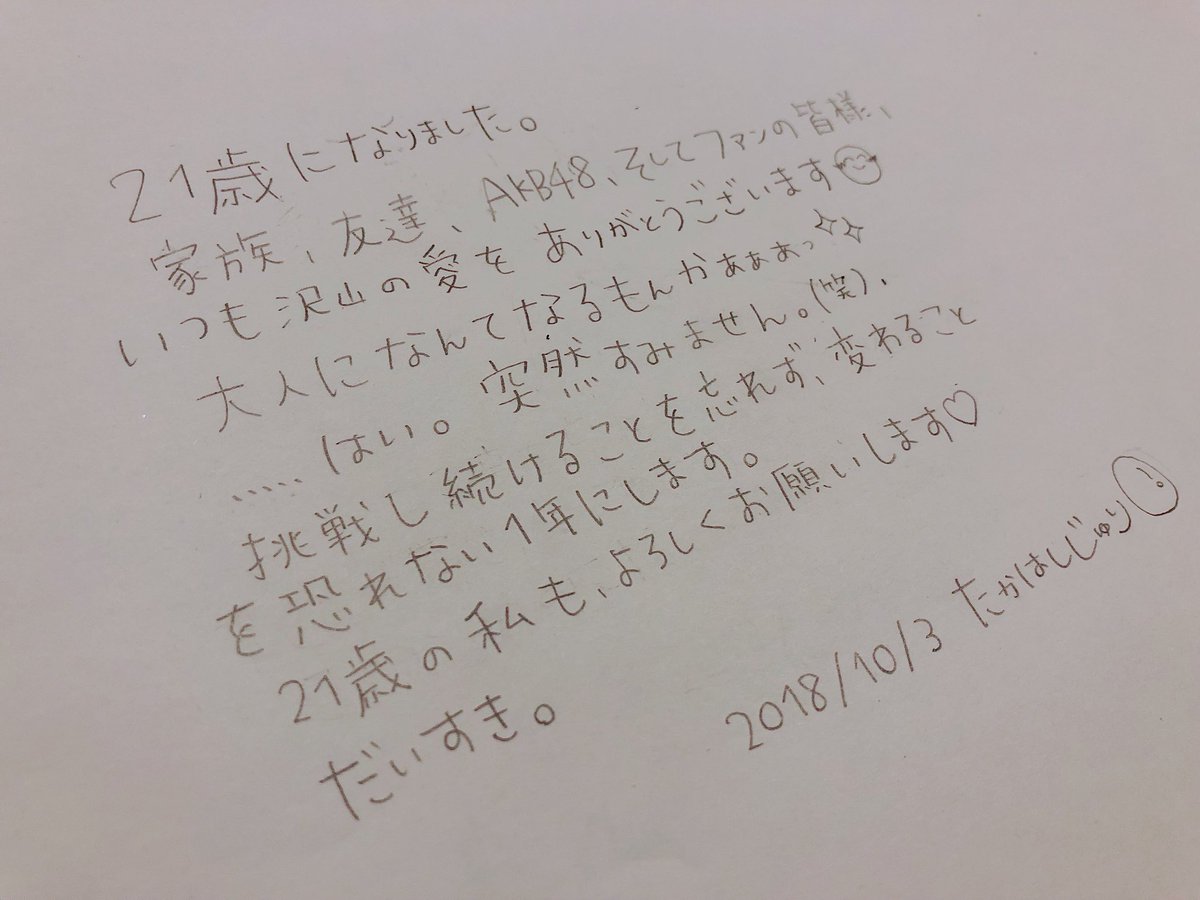 21歳になりました。
家族、友達、AKB48、そしてファンの皆様、
いつも沢山の愛をありがとうございます
大人になんてなるもんかぁぁぁっ✧✧
……はい。突然すみません。(笑)、
挑戦し続けることを忘れず、変わること
を恐れない1年にします。
21歳の私も、よろしくお願いします♡
だいすき。
2018/10/3 たかはしじゅり